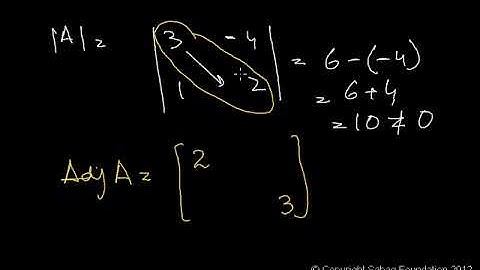 |A| = | 3 -4 | = 6 - (-4)
| 1 2 | = 6 + 4
= 10 ≠ 0
Adj A = [ 2
3 ]
© Copyright Sabaq Foundation 2012